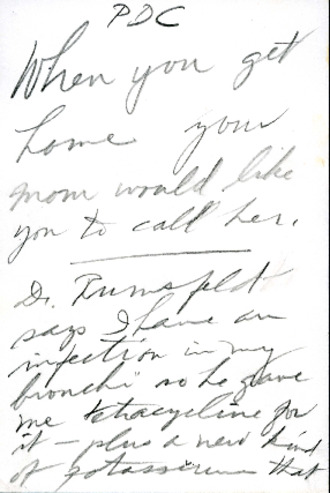 PDC
When you get
home your
mom would like
you to call her.
Dr. Rumsfeldt
says I have an
infection in my
bronchi so he gave
me tetracycline for
it - plus a new kind
of potassium that